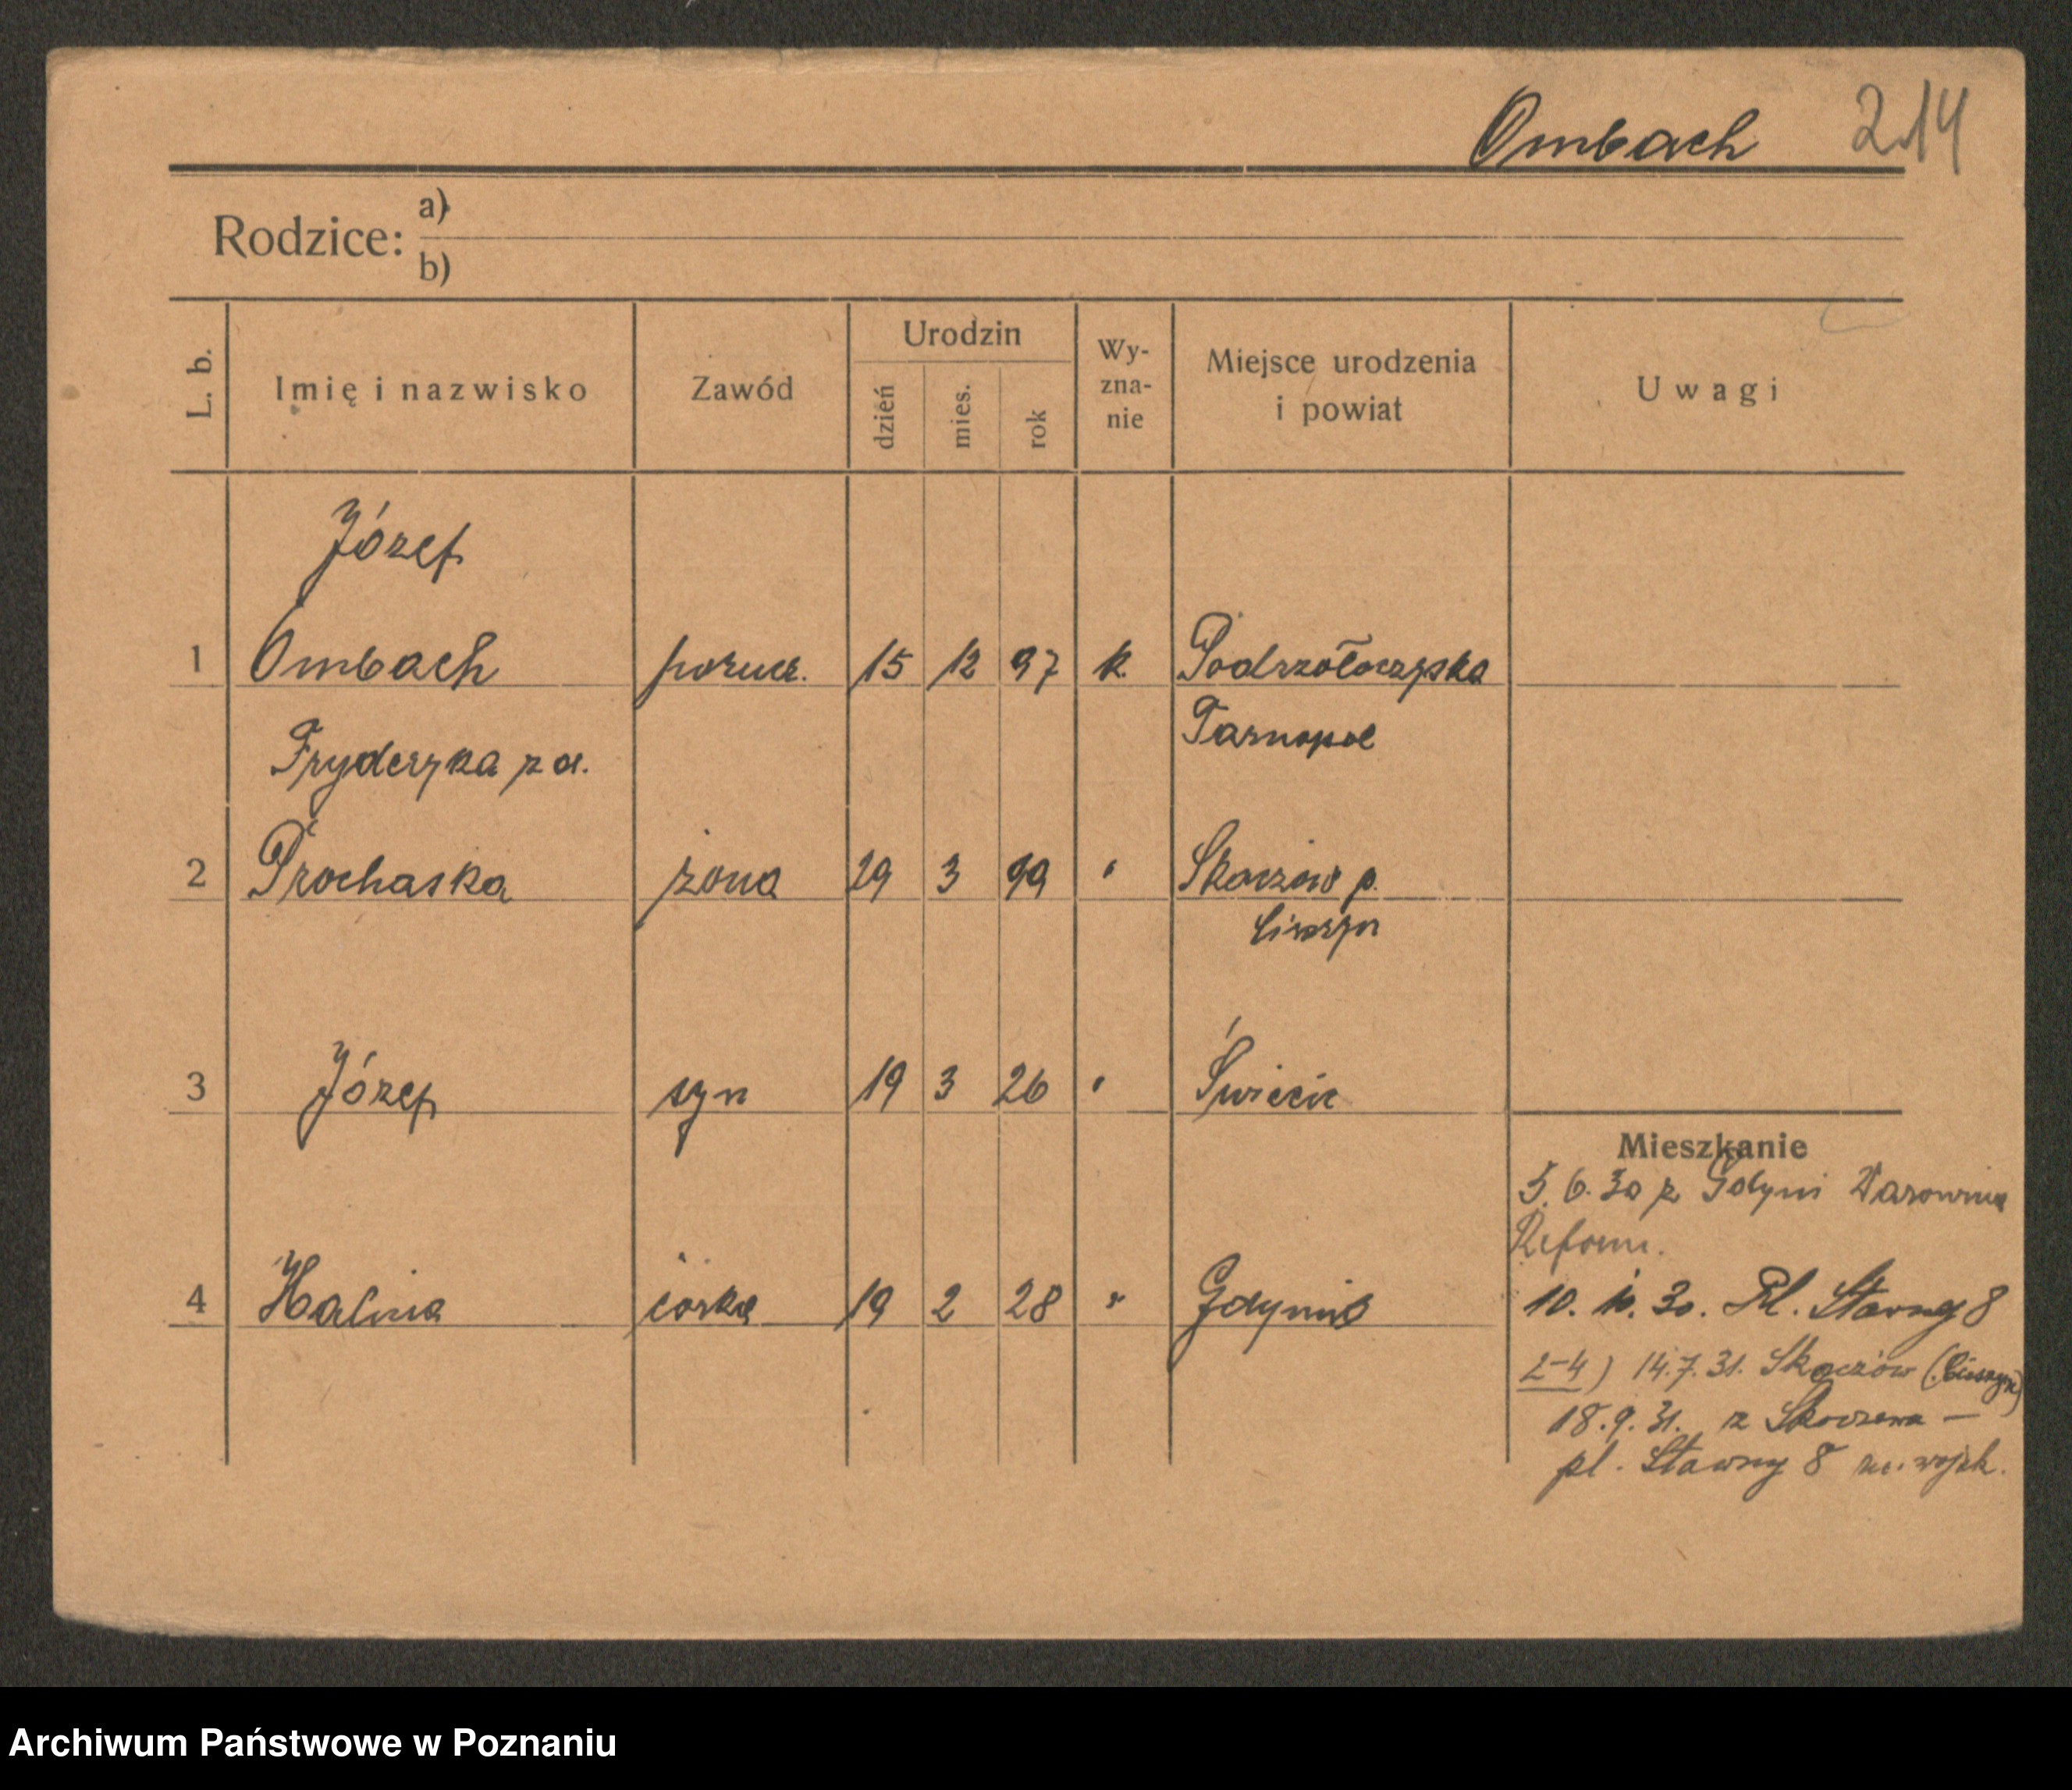 Ombach 214
Rodzice: a)
b)
L. b. Imię i nazwisko Zawód Urodzin dzień mies. rok Wy-zna-nie Miejsce urodzenia i powiat Uwagi
Józef
1 Ombach porucz. 15 12 97 k.
Tarnopol
Fryderyka z d.
2 Prochaska żona 29 3 99 " Skoczów p.
Cieszyn
3 Józef syn 19 3 26 " Świecie
Mieszkanie
5.6.30 z Gdyni
Reform.
4 Halina córka 19 2 28 " Gdynia
10. 10. 30. Pl. Stawny 8
2-4) 14.7.31. Skoczów (Cieszyn)
18.9.31. z Skoczowa —
pl. Stawny 8
Archiwum Państwowe w Poznaniu